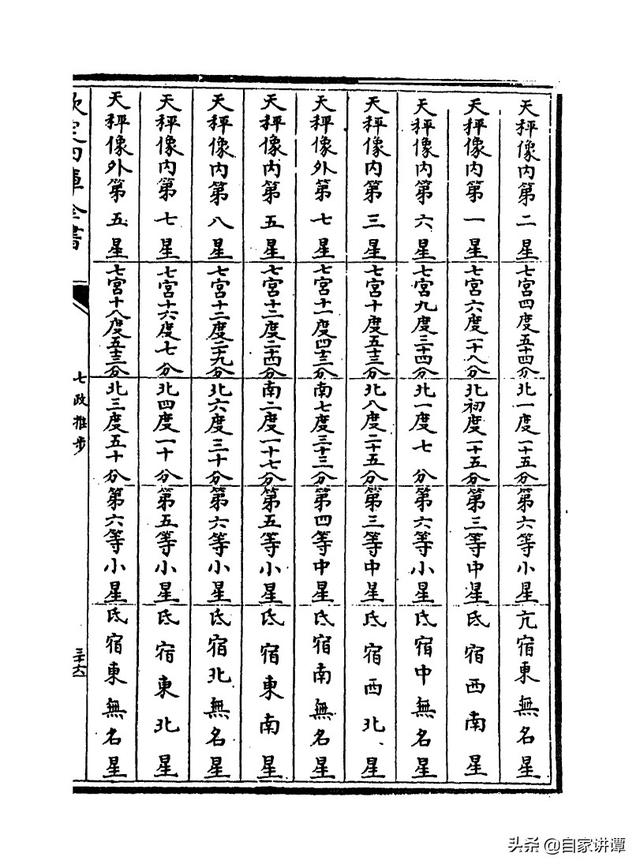 天秤像内第二星 七宮四度五十四分 北一度一十五分 第六等小星 亢宿東無名星
天秤像内第一星 七宮六度二十八分 北初度一十五分 第三等中星 氐宿西南星
天秤像内第六星 七宮九度三十四分 北一度七分 第六等小星 氐宿中無名星
天秤像内第三星 七宮十度五十三分 北八度二十五分 第三等中星 氐宿西北星
天秤像外第七星 七宮十一度四十三分 南七度三十三分 第四等中星 氐宿南無名星
天秤像内第五星 七宮十二度二十四分 南二度一十七分 第五等小星 氐宿東南星
天秤像内第八星 七宮十二度二十九分 北六度三十分 第六等小星 氐宿北無名星
天秤像内第七星 七宮十六度七分 北四度一十分 第五等小星 氐宿東北星
天秤像外第五星 七宮十八度五十三分 北三度五十分 第六等小星 氐宿東無名星
欽定四庫全書
七政推步
三十六
头条 @自家讲谭